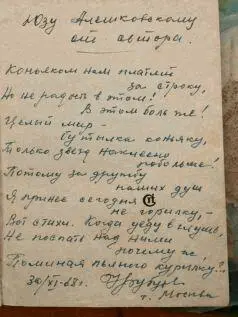 Юзу Алешковскому
от автора.
Коньяком нам платят
за строку,
Но не радость в этом!
В этом боль же!
Целый мир –
бутылка коньяку,
Только звезд на
побольше!
Потому за дружбу
наших душ
Я принес сегодня
не горилку, –
Вот стихи. Когда уеду в глушь,
Не поспать над ними
почему ж,
Поминая пьяного курилку?..
30/XI-68г.
г. Москва